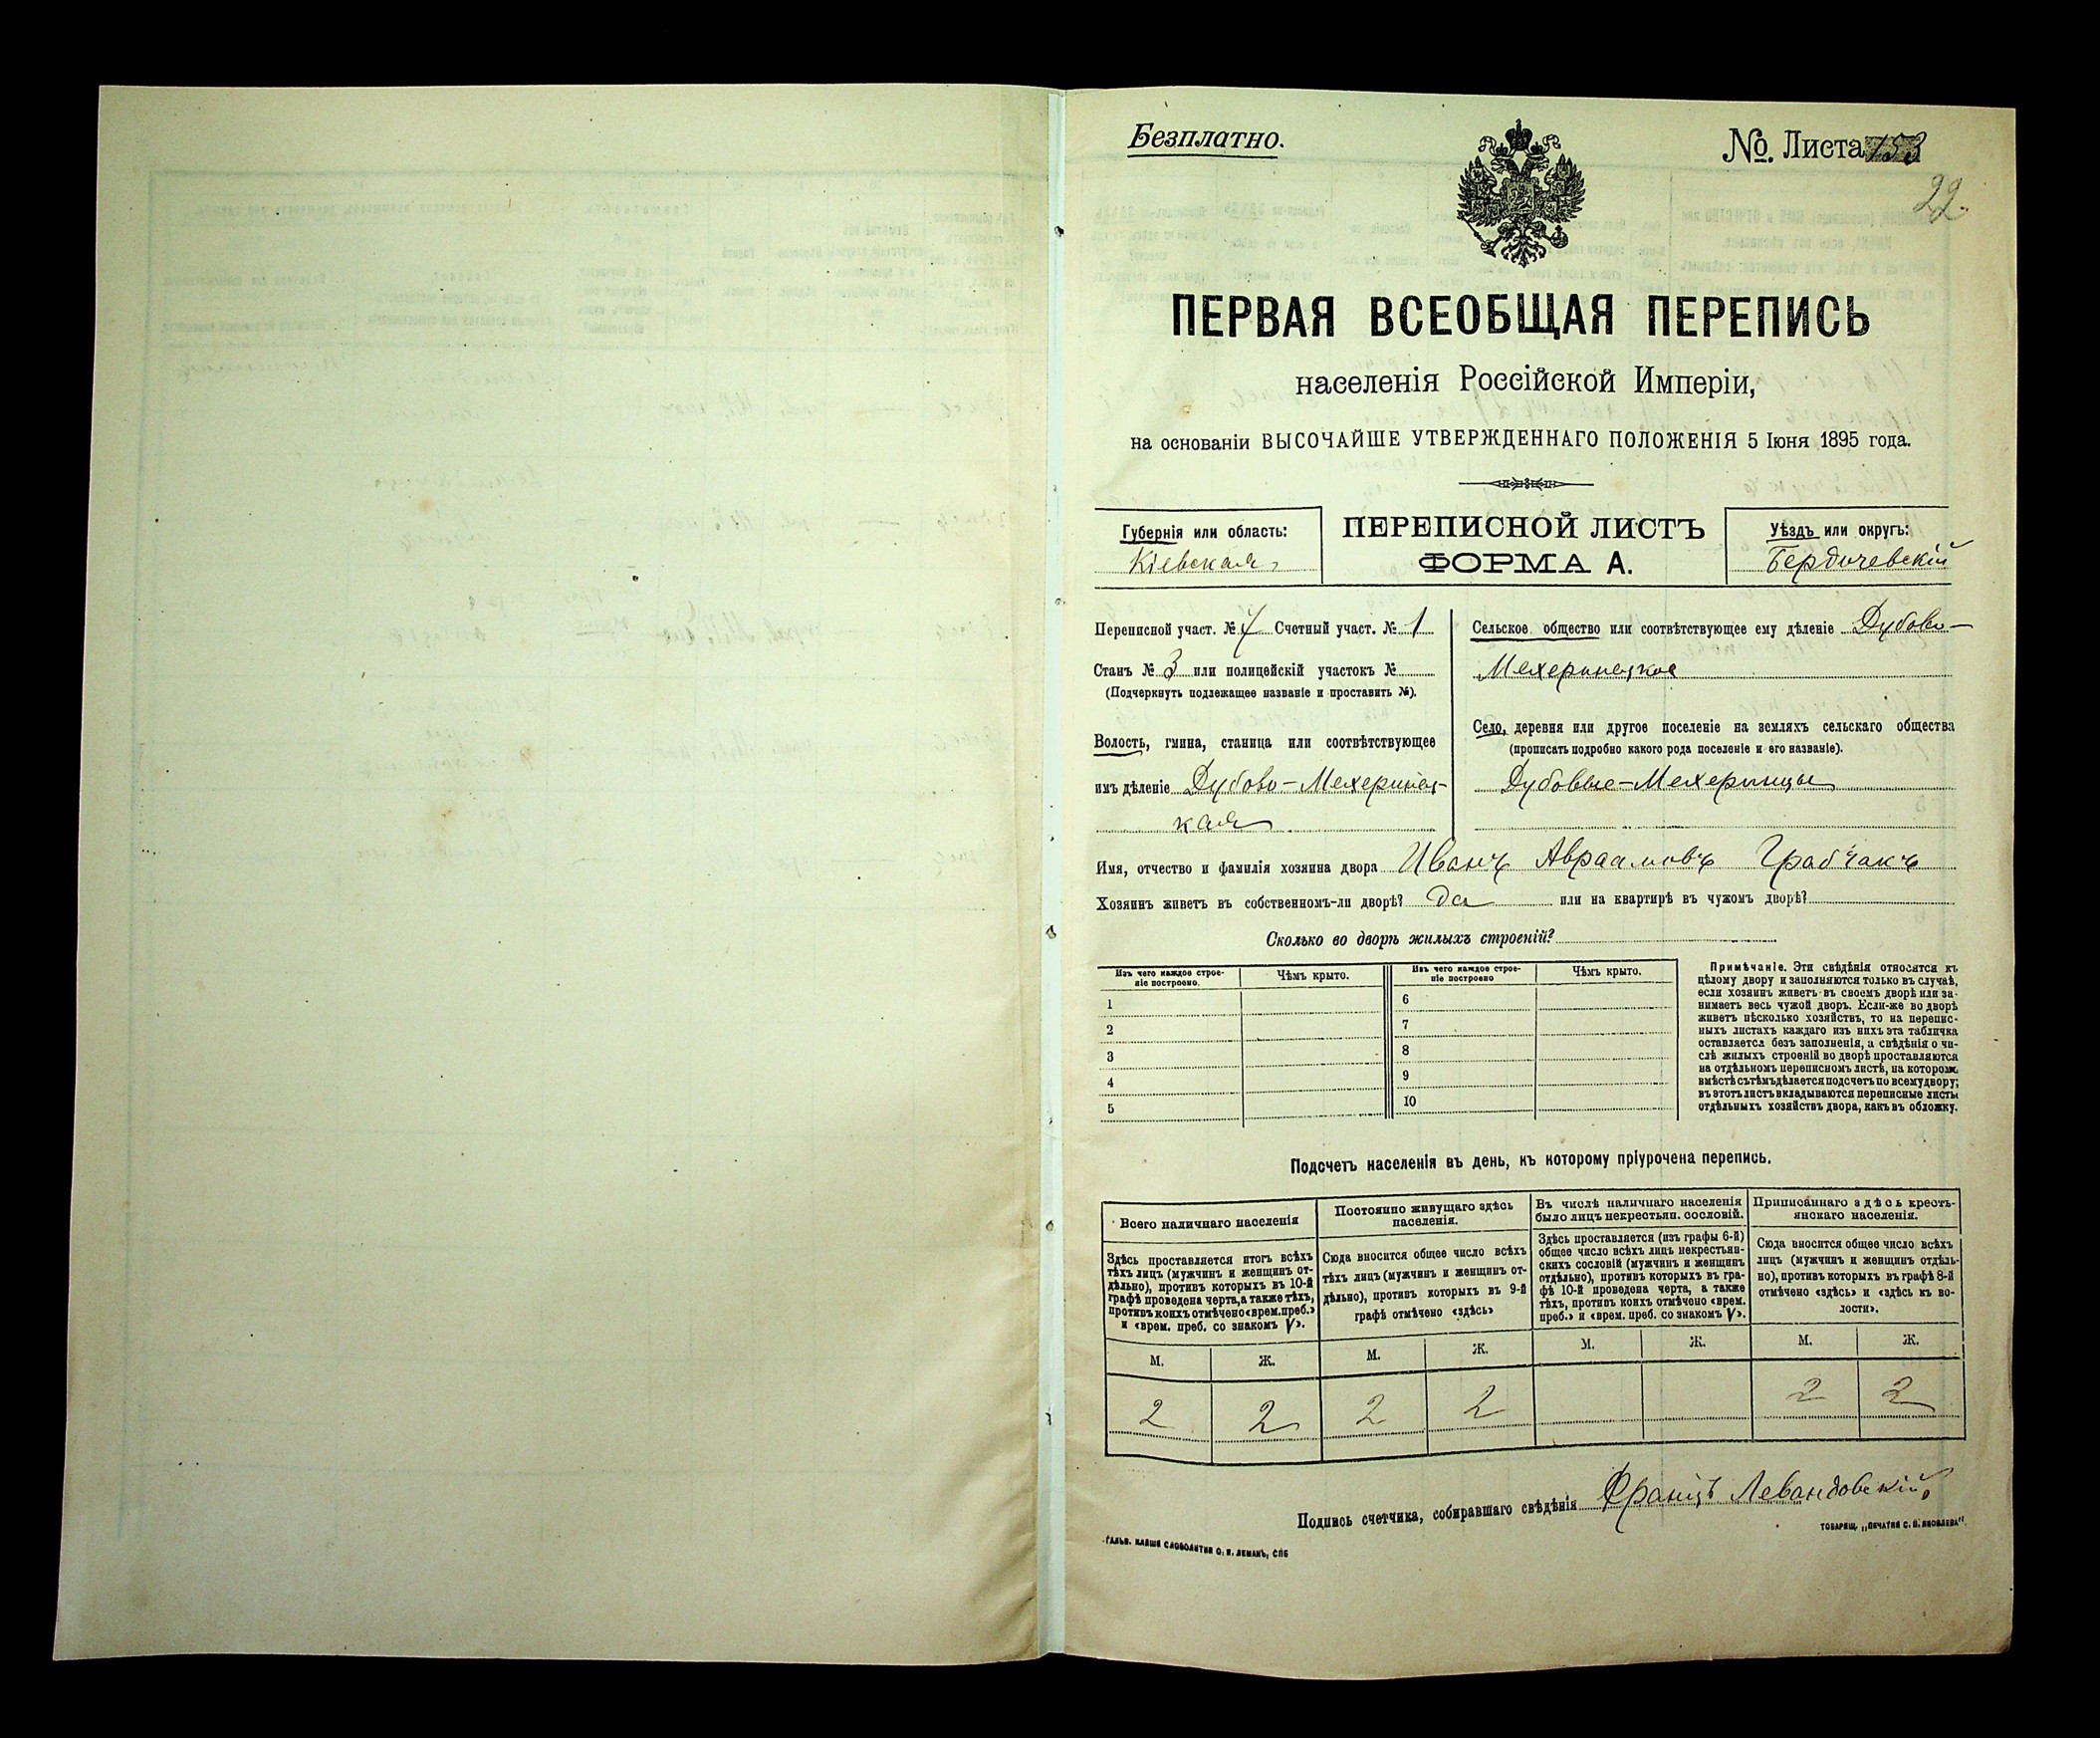 Безплатно.
No. Листа 153
22.
ПЕРВАЯ ВСЕОБЩАЯ ПЕРЕПИСЬ
населенія Россійской Имперіи,
на основаніи ВЫСОЧАЙШЕ УТВЕРЖДЕННАГО ПОЛОЖЕНІЯ 5 Іюня 1895 года.
Губернія или область:
Кіевская
ПЕРЕПИСНОЙ ЛИСТЪ
ФОРМА А.
Уѣздъ или округъ:
Бердичевскій
Переписной участ. № 4 Счетный участ. № 1
Станъ № 3 или полицейскій участокъ №
(Подчеркнуть подлежащее названіе и проставить №).
Волость, гмина, станица или соотвѣтствующее
имъ дѣленіе Дубово-Мехеринец-
кая
Сельское общество или соотвѣтствующее ему дѣленіе Дубово-
Мехеринецкое
Село, деревня или другое поселеніе на земляхъ сельскаго общества
(прописать подробно какого рода поселеніе и его названіе).
Дубовые-Мехеринцы
Имя, отчество и фамилія хозяина двора Иванъ Авраамовъ Грабчакъ
Хозяинъ живетъ въ собственномъ-ли дворѣ? да или на квартирѣ въ чужомъ дворѣ?
Сколько во дворѣ жилыхъ строеній?
Изъ чего каждое строе-
ніе построено.
Чѣмъ крыто.
Изъ чего каждое строе-
ніе построено
Чѣмъ крыто.
1
2
3
4
5
6
7
8
9
10
Примѣчаніе. Эти свѣдѣнія относятся къ
цѣлому двору и заполняются только въ случаѣ,
если хозяинъ живетъ въ своемъ дворѣ или за-
нимаетъ весь чужой дворъ. Если-же во дворѣ
живетъ нѣсколько хозяйствъ, то на перепис-
ныхъ листахъ каждаго изъ нихъ эта табличка
оставляется безъ заполненія, а свѣдѣнія о чи-
слѣ жилыхъ строеній во дворѣ проставляются
на отдѣльномъ переписномъ листѣ, на которомъ
вмѣстѣ съ тѣмъ дѣлается подсчетъ по всему двору;
въ этотъ листъ вкладываются переписные листы
отдѣльныхъ хозяйствъ двора, какъ въ обложку.
Подсчетъ населенія въ день, къ которому пріурочена перепись.
Всего наличнаго населенія
Здѣсь проставляется итогъ всѣхъ
тѣхъ лицъ (мужчинъ и женщинъ от-
дѣльно), противъ которыхъ въ 10-й
графѣ проведена черта, а также тѣхъ,
противъ коихъ отмѣчено «врем. преб.»
и «врем. преб. со знакомъ V».
Постоянно живущаго здѣсь
населенія.
Сюда вносится общее число всѣхъ
тѣхъ лицъ (мужчинъ и женщинъ от-
дѣльно), противъ которыхъ въ 9-й
графѣ отмѣчено «здѣсь»
Въ числѣ наличнаго населенія
было лицъ некрестьян. сословій.
Здѣсь проставляется (изъ графы 6-й)
общее число всѣхъ лицъ некрестьян-
скихъ сословій (мужчинъ и женщинъ
отдѣльно), противъ которыхъ въ гра-
фѣ 10-й проведена черта, а также
тѣхъ, противъ коихъ отмѣчено «врем.
преб.» и «врем. преб. со знакомъ V».
Приписаннаго здѣсь кресть-
янскаго населенія.
Сюда вносится общее число всѣхъ
лицъ (мужчинъ и женщинъ отдѣль-
но), противъ которыхъ въ графѣ 8-й
отмѣчено «здѣсь» и «здѣсь къ во-
лости».
М. Ж. М. Ж. М. Ж. М. Ж.
2 2 2 2 2 2
Подпись счетчика, собиравшаго свѣдѣнія Францъ Левандовскій
ТОВАРИЩ. „ПЕЧАТНЯ С. П. ЯКОВЛЕВА“.
ГАЛЬВ. КЛИШЕ СЛОВОЛИТНИ О. И. ЛЕМАНЪ, СПБ